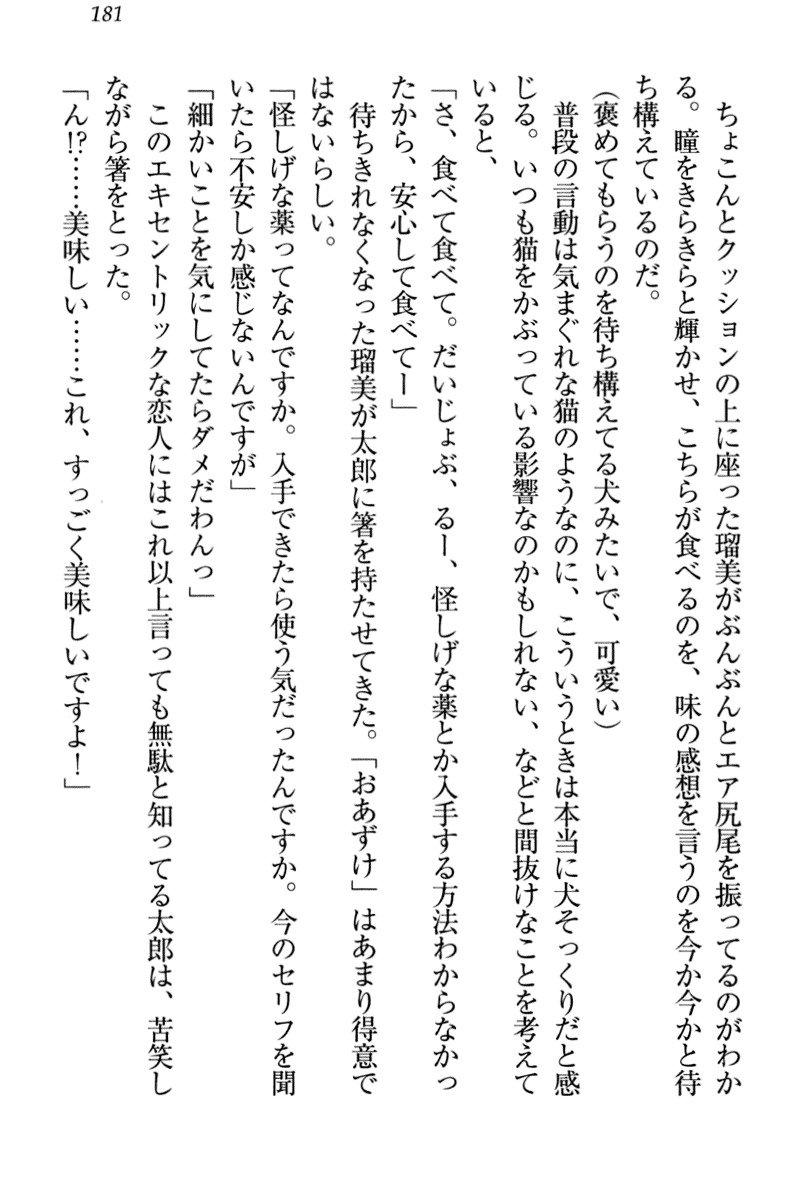 181
　ちょこんとクッションの上に座った瑠美がぶんぶんとエア尻尾を振ってるのがわか
る。瞳をきらきらと輝かせ、こちらが食べるのを、味の感想を言うのを今か今かと待
ち構えているのだ。
（褒めてもらうのを待ち構えてる犬みたいで、可愛い）
　普段の言動は気まぐれな猫のようなのに、こういうときは本当に犬そっくりだと感
じる。いつも猫をかぶっている影響なのかもしれない、などと間抜けなことを考えて
いると、
「さ、食べて食べて。だいじょぶ、るー、怪しげな薬とか入手する方法わからなかっ
たから、安心して食べてー」
　待ちきれなくなった瑠美が太郎に箸を持たせてきた。「おあずけ」はあまり得意で
はないらしい。
「怪しげな薬ってなんですか。入手できたら使う気だったんですか。今のセリフを聞
いたら不安しか感じないんですが」
「細かいことを気にしてたらダメだわんっ」
　このエキセントリックな恋人にはこれ以上言っても無駄と知ってる太郎は、苦笑し
ながら箸をとった。
「ん!?……美味しい……これ、すっごく美味しいですよ！」